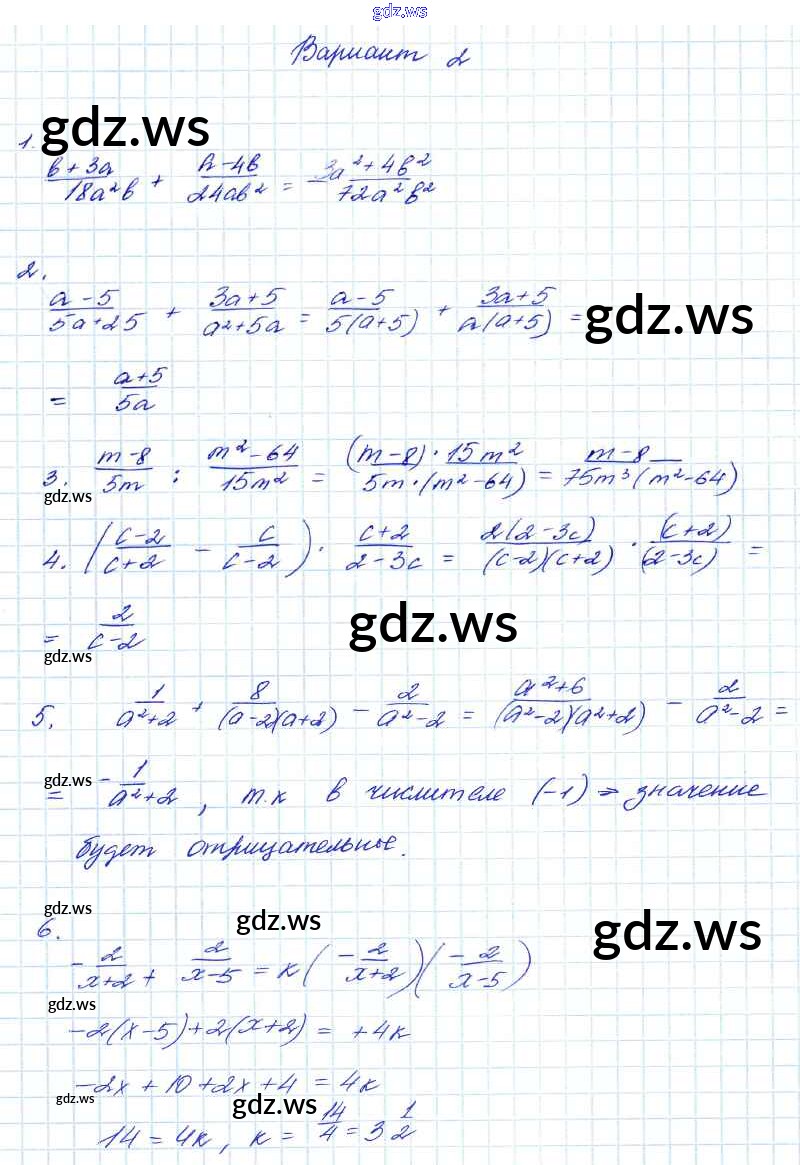 gdz.ws
Вариант 2
gdz.ws
1.
(в + 3a)/(18a²в) + (a - 4в)/(24aв²) = (3a² + 4в²)/(72a²в²)
2.
(a - 5)/(5a + 25) + (3a + 5)/(a² + 5a) = (a - 5)/(5(a + 5)) + (3a + 5)/(a(a + 5)) =
gdz.ws
= (a + 5)/(5a)
3. (m - 8)/(5m) : (m² - 64)/(15m²) = ((m - 8) · 15m²)/(5m · (m² - 64)) = (m - 8)/(75m³(m² - 64))
gdz.ws
4. ((c - 2)/(c + 2) - c/(c - 2)) · (c + 2)/(2 - 3c) = (2(2 - 3c))/((c - 2)(c + 2)) · (c + 2)/(2 - 3c) =
= 2/(c - 2)
gdz.ws
gdz.ws
5. 1/(a² + 2) + 8/((a - 2)(a + 2)) - 2/(a² - 2) = (a² + 6)/((a² - 2)(a² + 2)) - 2/(a² - 2) =
gdz.ws
= - 1/(a² + 2), т.к в числителе (-1) ⇒ значение
будет отрицательные.
gdz.ws
gdz.ws
gdz.ws
6.
- 2/(x + 2) + 2/(x - 5) = к(- 2/(x + 2))(- 2/(x - 5))
gdz.ws
-2(x - 5) + 2(x + 2) = +4к
-2x + 10 + 2x + 4 = 4к
gdz.ws
gdz.ws
14 = 4к, к = 14/4 = 3 1/2